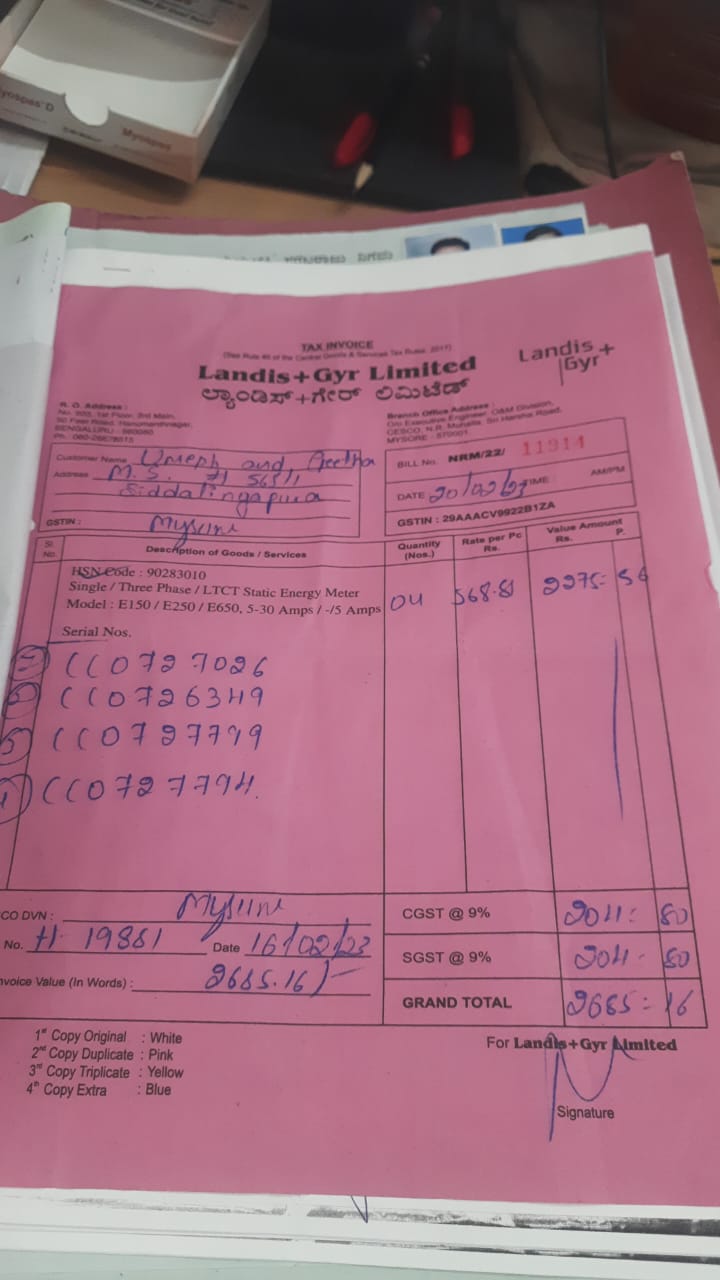 Myospas
TAX INVOICE
(See Rule 46 of the Central Goods & Services Tax Rules, 2017)
Landis+Gyr Limited
Landis+
Gyr
ಲ್ಯಾಂಡಿಸ್+ಗೇರ್ ಲಿಮಿಟೆಡ್
R. O. Address :
1st Floor, 3rd Main,
BENGALURU - 560060
Branch Office Address :
O/o Executive Engineer, O&M Division,
CESCO, N.R. Muhalla, Sri Harsha Road,
MYSORE - 570001.
Customer Name Umesh and, Geetha
Address M.S. # 568/1
Siddalingapura
GSTIN : Mysuru
BILL No. NRM/22/ 11914
DATE 20/02/23 TIME : AM/PM
GSTIN : 29AAACV9922B1ZA
Sl. No.
Description of Goods / Services
Quantity (Nos.)
Rate per Pc Rs.
Value Amount Rs. P.
HSN Code : 90283010
Single / Three Phase / LTCT Static Energy Meter
Model : E150 / E250 / E650, 5-30 Amps / -/5 Amps
04 568.81 2275=56
Serial Nos.
CC0727026
CC0726349
CC0727799
CC0727794.
CO DVN : Mysuru
No. 19881 Date 16/02/23
nvoice Value (In Words) : 2685.16/-
CGST @ 9% 204= 80
SGST @ 9% 204- 80
GRAND TOTAL 2685=16
1st Copy Original : White
2nd Copy Duplicate : Pink
3rd Copy Triplicate : Yellow
4th Copy Extra : Blue
For Landis+Gyr Limited
Signature